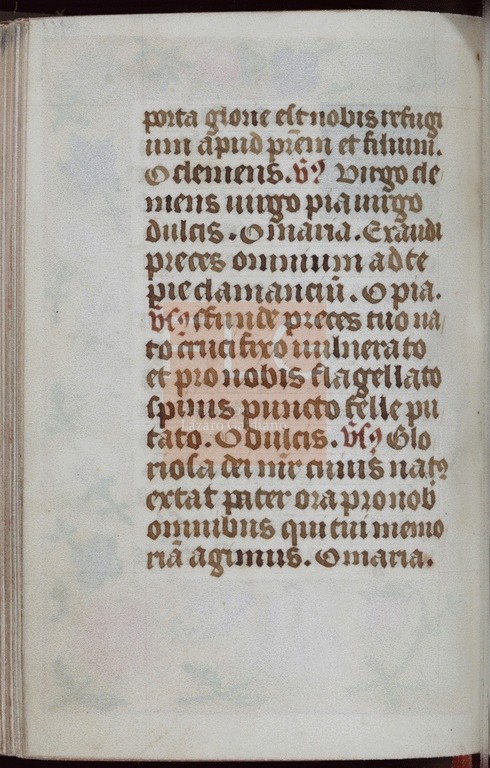 porta glorie est nobis refugi
um apud prēm et filium.
O clemens. vs Virgo cle
mens uirgo pia uirgo
dulcis. O maria. Exaudi
preces omnium ad te
pie clamanciū. O pia.
vs ffunde preces tuo na
to crucifixo uulnerato
et pro nobis flagellato
spinis puncto felle pu
tato. O dulcis. vs Glo
riosa dei mr cuius nat9
extat pater ora pro nob
omnibus qui tui memo
riā agimus. O maria.
Lázaro Galdiano